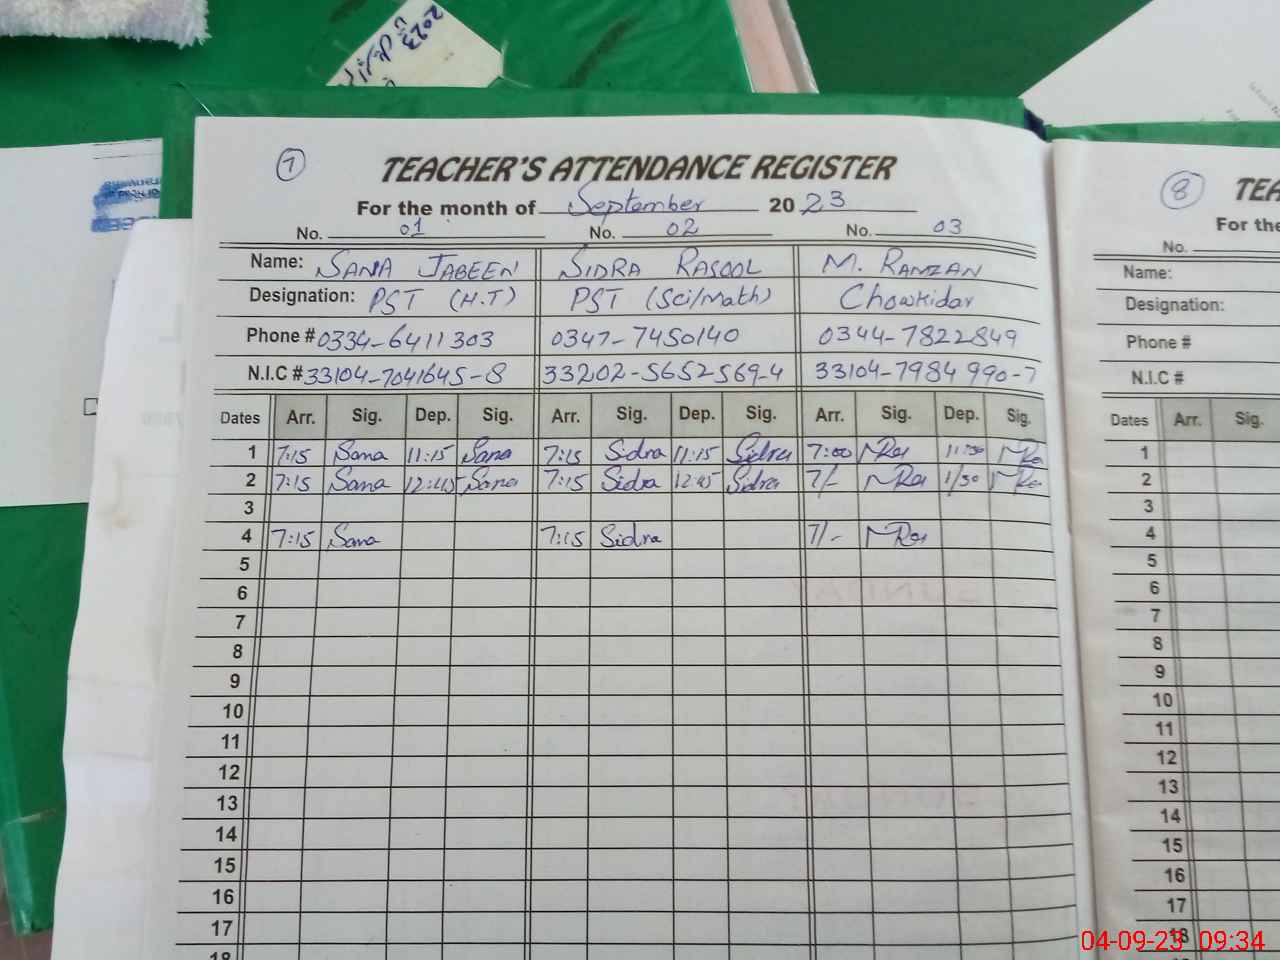 2023
7
TEACHER'S ATTENDANCE REGISTER
For the month of September 2023
No. 01 No. 02 No. 03
Name: SANA JABEEN SIDRA RASOOL M. RAMZAN
Designation: PST (H.T) PST (Sci/Math) Chowkidar
Phone # 0334-6411303 0347-7450140 0344-7822849
N.I.C # 33104-7041645-8 33202-5652569-4 33104-7984990-7
Dates Arr. Sig. Dep. Sig. Arr. Sig. Dep. Sig. Arr. Sig. Dep. Sig.
1 7:15 Sana 11:15 Sana 7:15 Sidra 11:15 Sidra 7:00 MRa 11:30 MRa
2 7:15 Sana 12:45 Sana 7:15 Sidra 12:45 Sidra 7/- MRa 1/30 MRa
3
4 7:15 Sana 7:15 Sidra 7/- MRa
5
6
7
8
9
10
11
12
13
14
15
16
17
18
8
TEA
For the
No.
Name:
Designation:
Phone #
N.I.C #
Dates Arr. Sig.
1
2
3
4
5
6
7
8
9
10
11
12
13
14
15
16
17
18
04-09-23 09:34